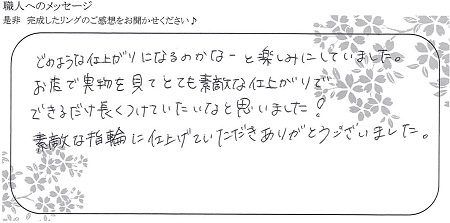 職人へのメッセージ
是非 完成したリングのご感想をお聞かせください♪
どのような仕上がりになるのかなーと楽しみにしていました。
お店で実物を見てとても素敵な仕上がりで
できるだけ長くつけていたいなと思いました!
素敵な指輪に仕上げていただきありがとうございました。